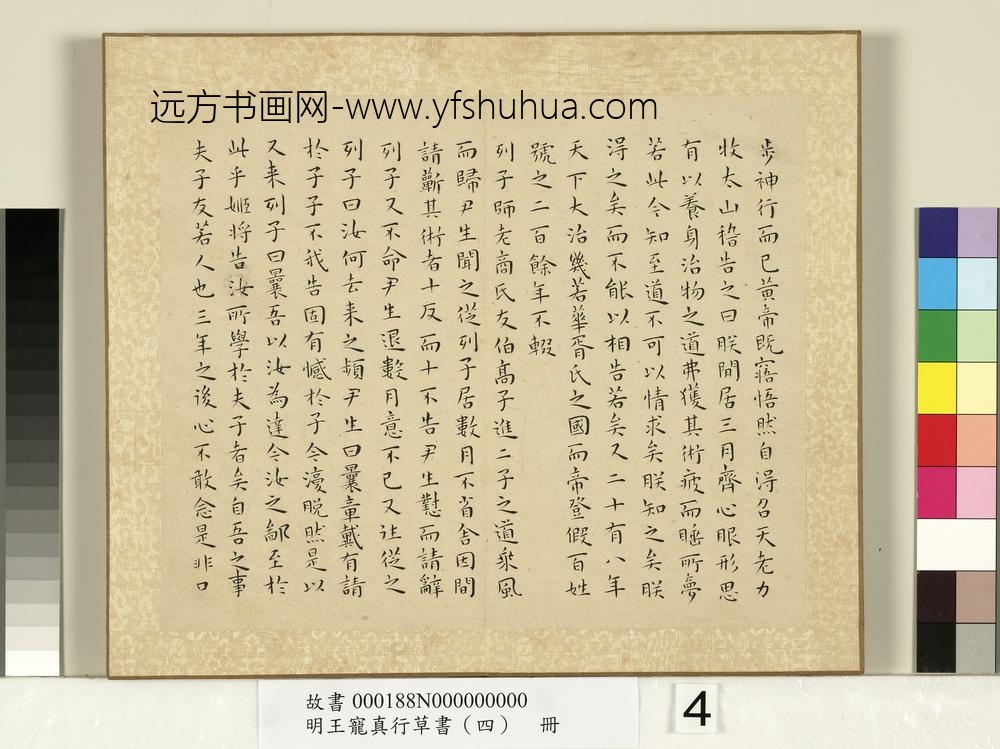 远方书画网-www.yfshuhua.com
步神行而已黃帝既寤悟然自得召天老力
牧太山稽告之曰朕閒居三月齊心服形思
有以養身治物之道弗獲其術疲而睡所夢
若此今知至道不可以情求矣朕知之矣朕
得之矣而不能以相告若矣又二十有八年
天下大治幾若華胥氏之國而帝登假百姓
號之二百餘年不輟
列子師老商氏友伯高子進二子之道乘風
而歸尹生聞之從列子居數月不省舍因間
請蘄其術者十反而十不告尹生懟而請辭
列子又不命尹生退數月意不已又往從之
列子曰汝何去來之頻尹生曰曩章戴有請
於子子不我告固有憾於子今復脫然是以
又來列子曰曩吾以汝為達今汝之鄙至於
此乎姬將告汝所學於夫子者矣自吾之事
夫子友若人也三年之後心不敢念是非口
故書000188N000000000
明王寵真行草書（四） 冊
4